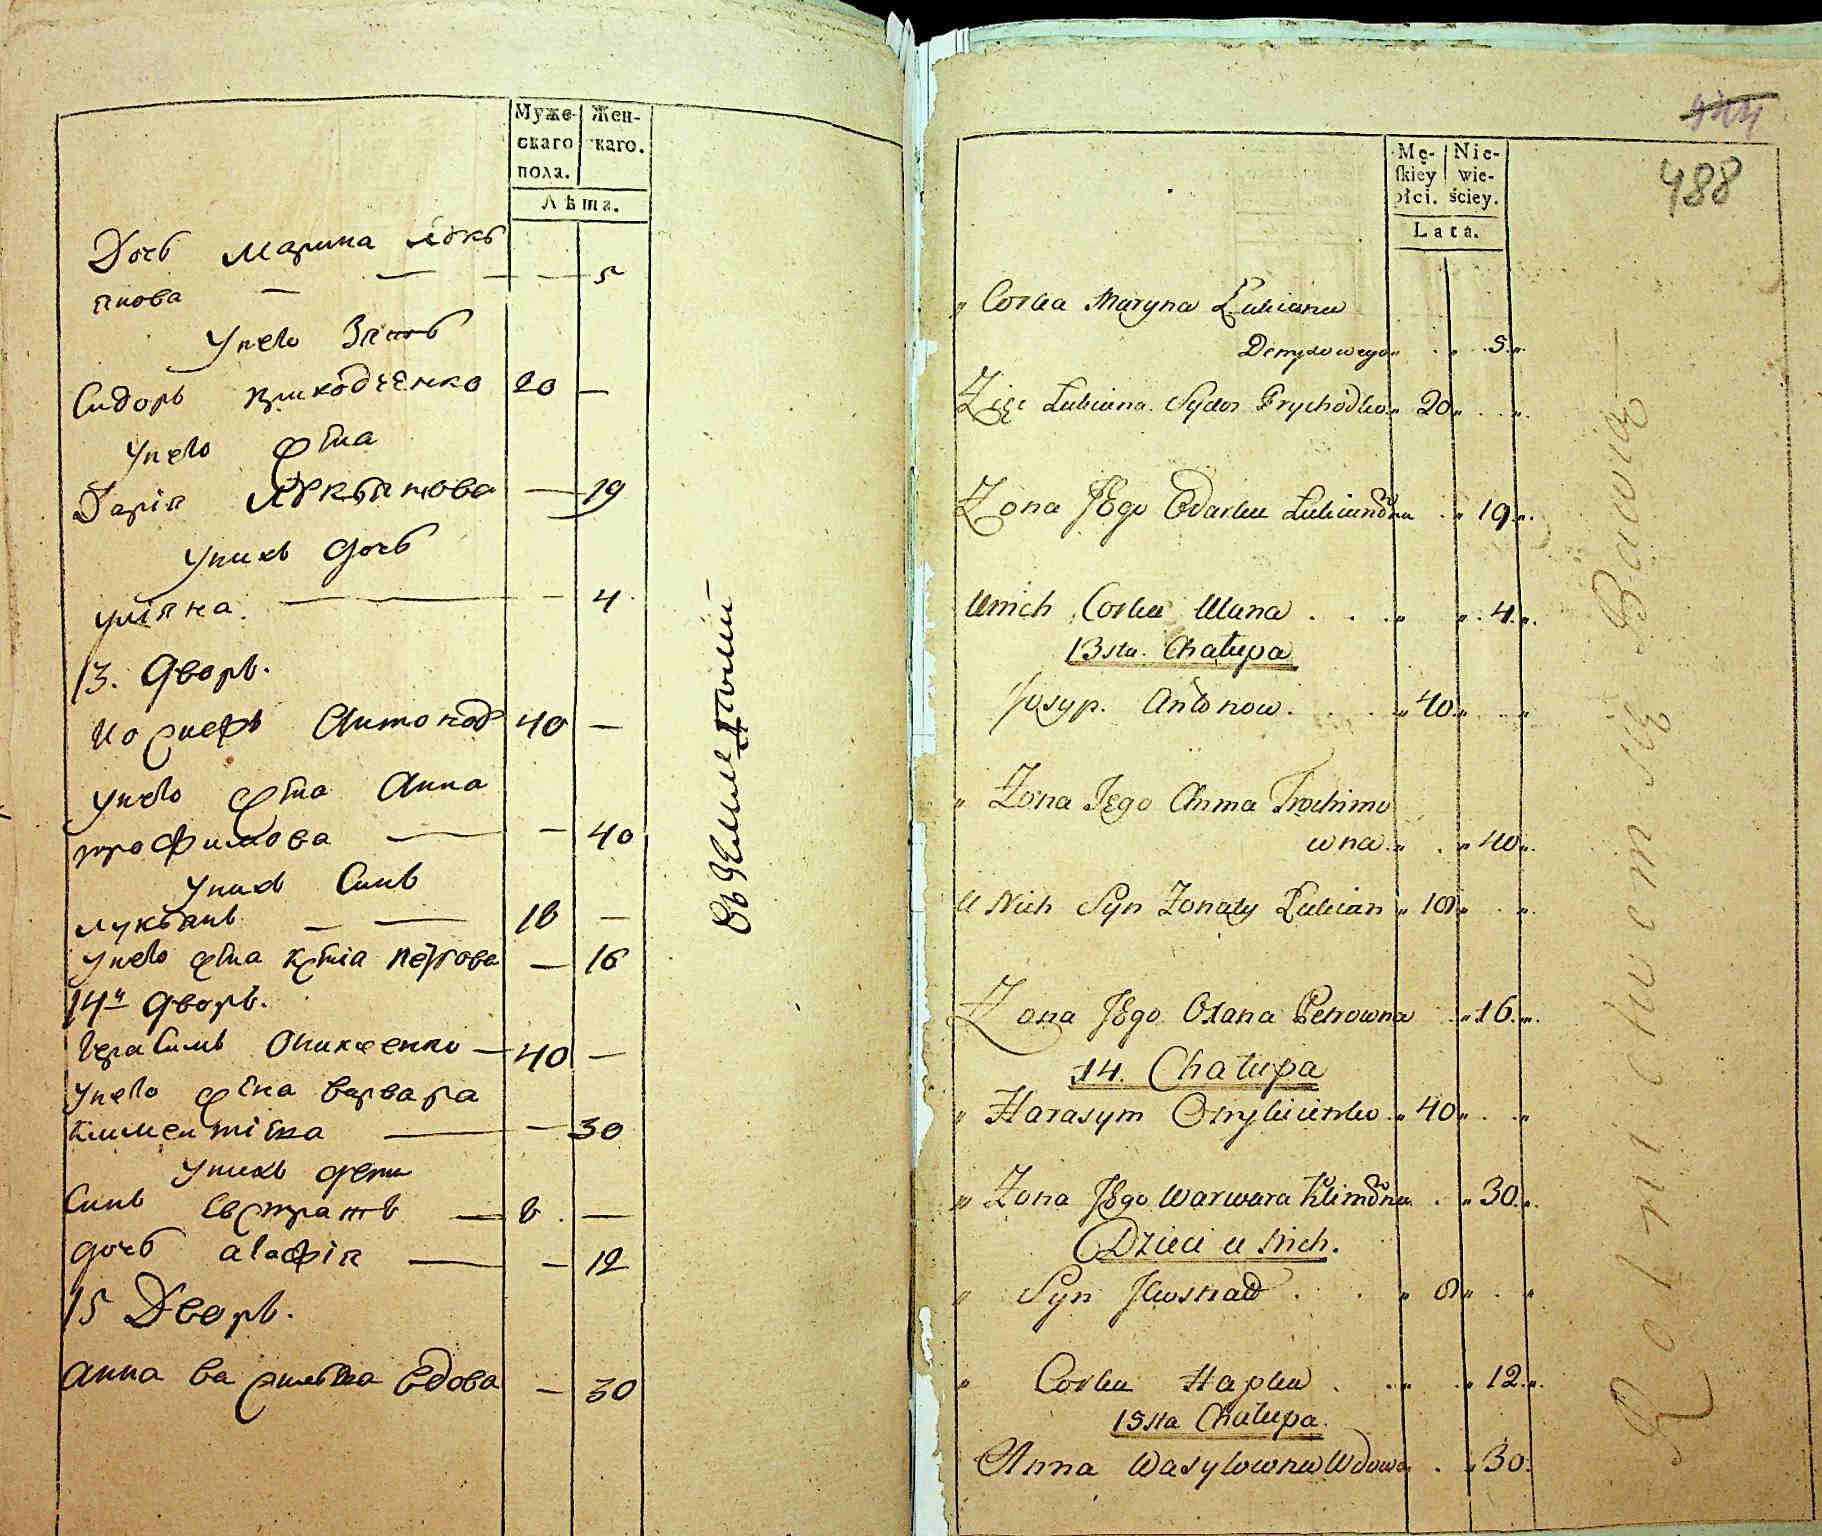 Муже-
скаго
пола.
Жен-
скаго.
Лѣта.
Дочь Марина Лукь
янова — — — 5
У него Зять
Сидоръ Приходченко 20 —
У него жена
Дарія Лукьянова — 19
У нихъ дочь
Уліяна — — 4
13. Дворъ.
Иосифъ Антонов 40 —
У него жена Анна
Трофимова — — 40
У нихъ Синъ
Лукьянъ — — 18 —
У него жена Ксенія Петрова — 16
14й Дворъ.
Герасимъ — 40 —
У него жена Варвара
— — 30
У нихъ дети
Синъ Евстратъ — 8 —
дочь Агафія — — 12
15 Дворъ.
Анна Васильева Вдова — 30
488
Mę-
skiey
płci.
Nie-
wie-
ściey.
Lata.
„ Corka Maryna Lukiana
Demydowego „ . „ 5 „
Zięć Lukiana Sydor Prychodko „ 20 „ . „
Żona Jego Odarka Lukianowna . „ 19 „
U nich Corka Ulana . . „ „ 4 „
13sta Chałupa
Josyp Antonow . . . „ 40 „ . „
„ Żona Jego Anna Trochimo
wna „ . „ 40 „
U Nich Syn Żonaty Lukian „ 18 „ . „
Żona Jego Oxana Petrowna „ 16 „
14. Chałupa
„ Harasym „ 40 „ . „
„ Żona Jego Warwara Klimowna . „ 30 „
Dzieci u Nich.
„ Syn Jewstrat . . „ 8 „ . „
„ Corka Hapka . . „ „ 12 „
15sta Chałupa
Anna Wasylowna Wdowa . „ 30
Rolnictwem się Bawią